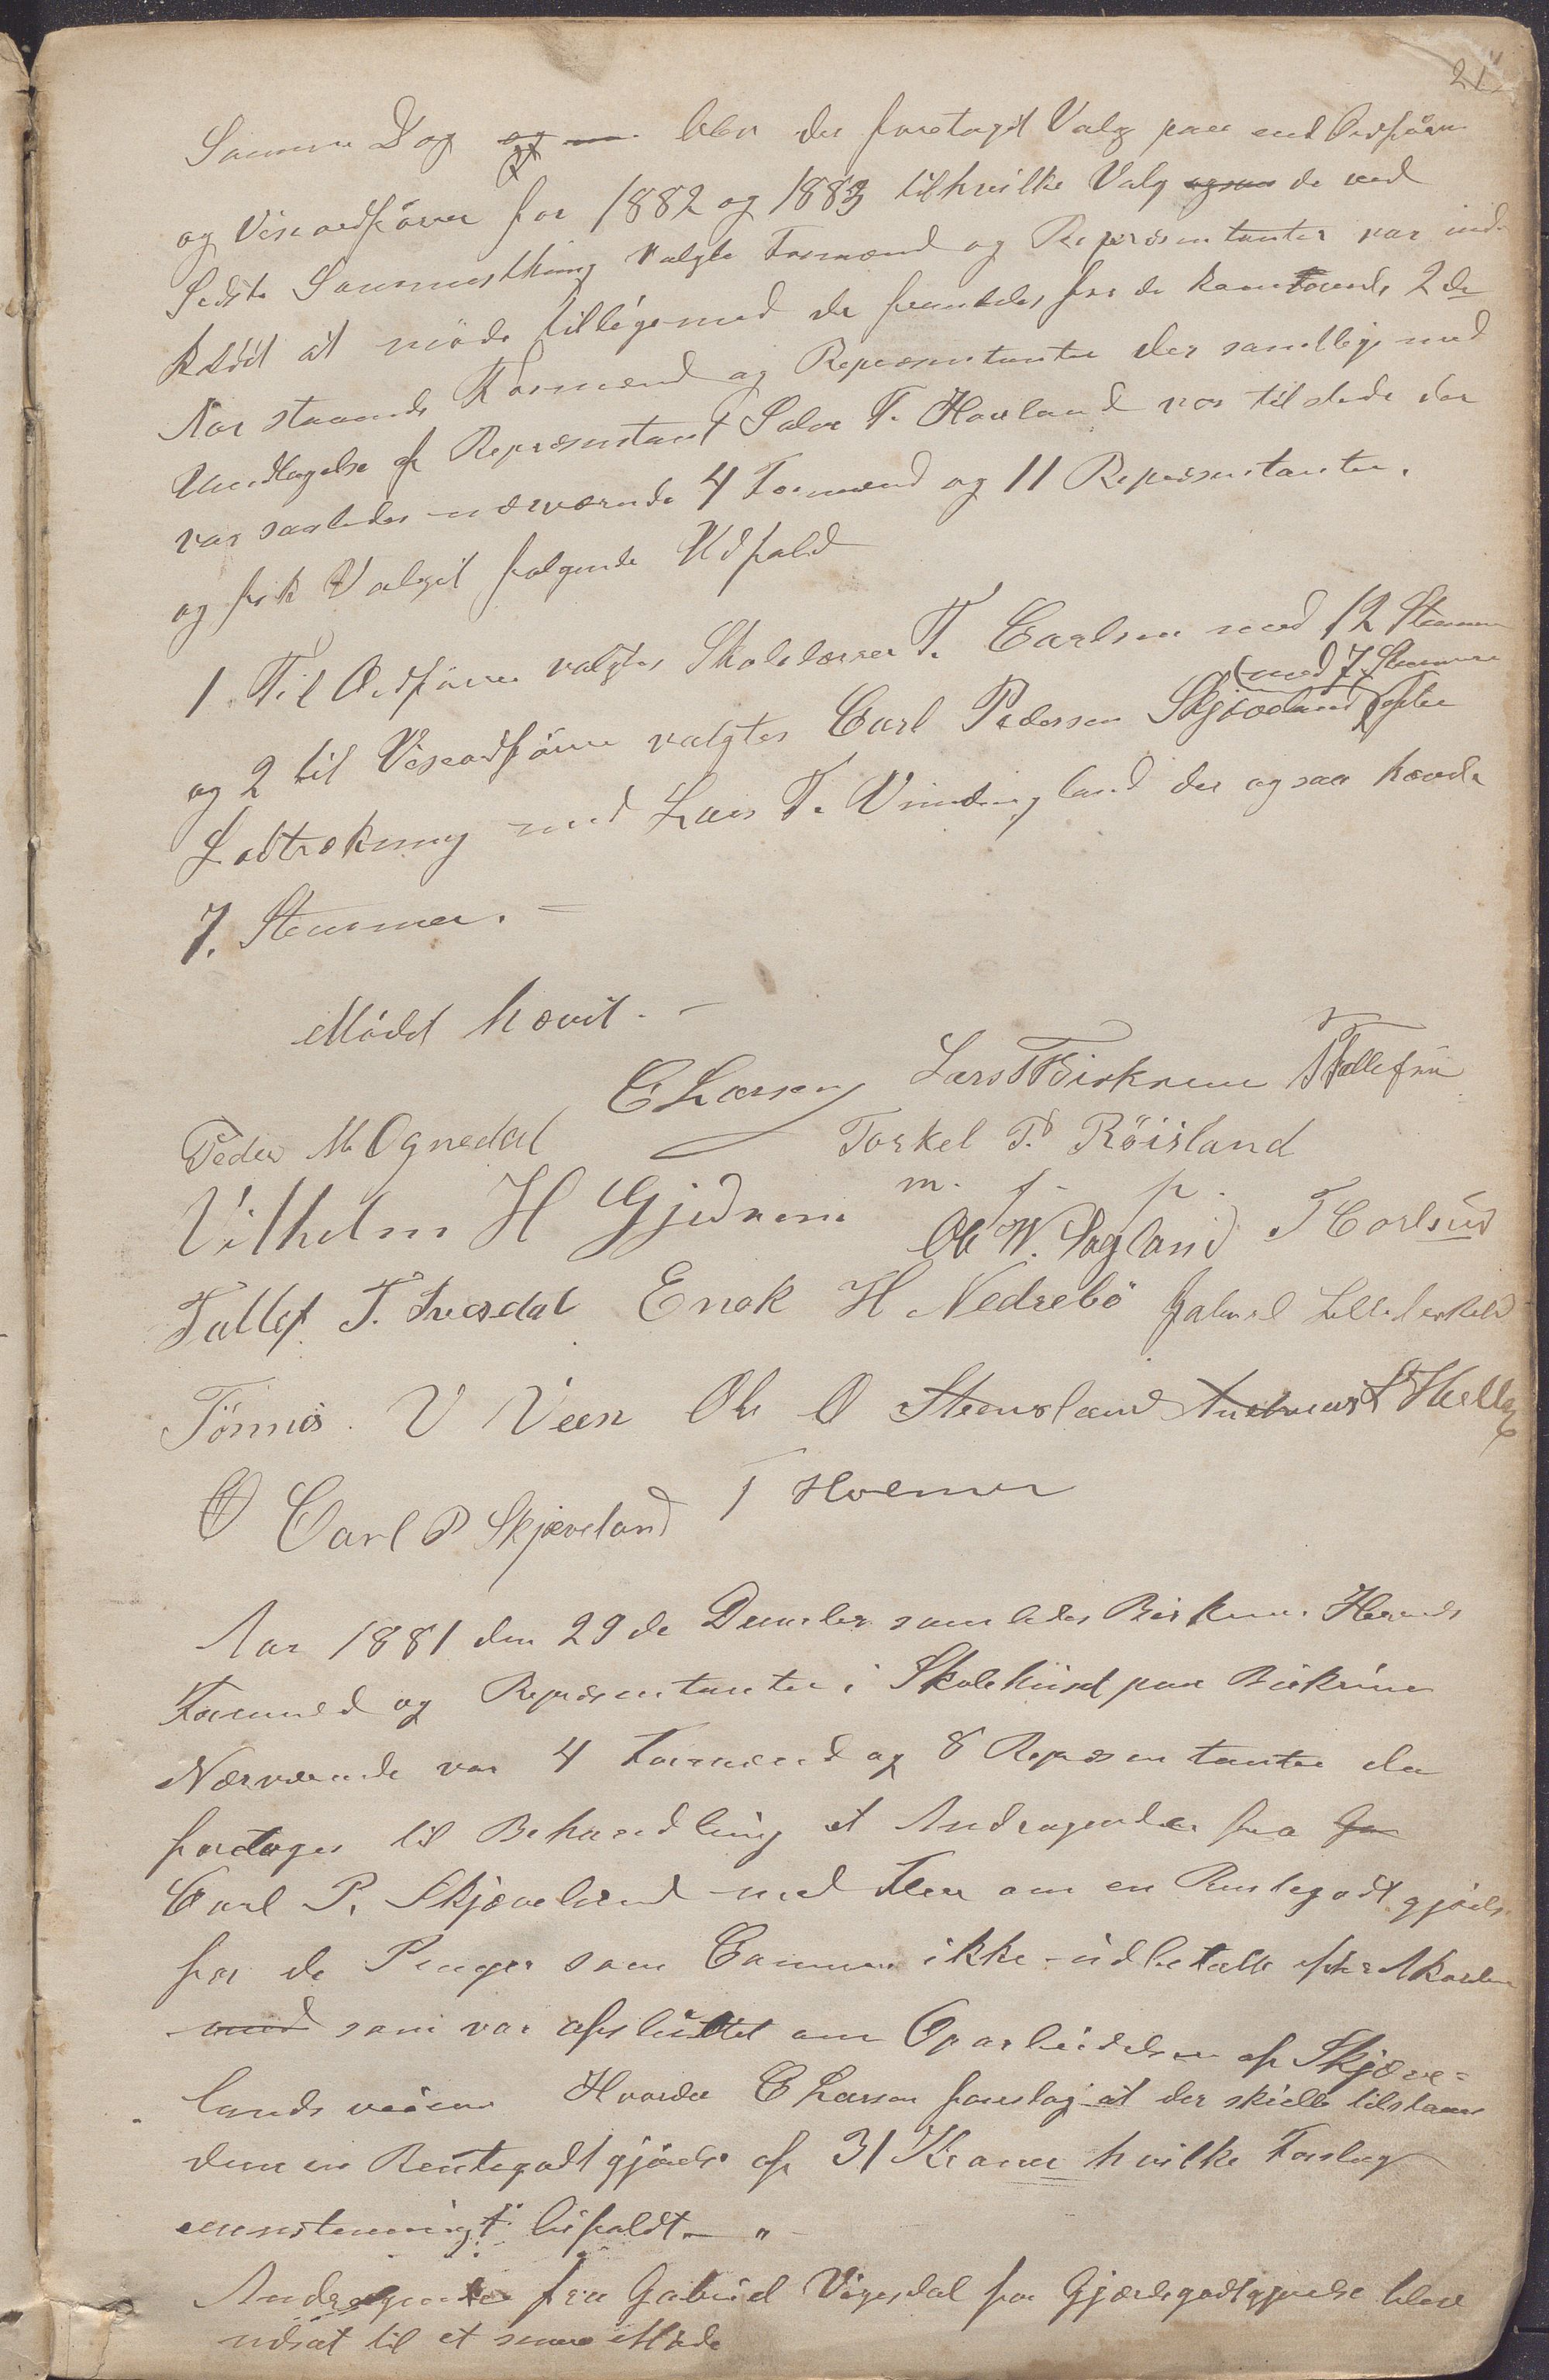 21
Samme Dag blev der foretaget Valg paa en Ordförer
og Viseordförer for 1882 og 1883 til hvilke Valg ogsaa de ved
sidste Sammesthing valgte Formænd og Repræsentanter var ind-
kaldt at möde tilligemed de fremdeles for de kommende 2de
Aar staaende Formænd og Repræsentanter der samtlige med
Undtagelse af Repræsentant Salve T. Hovland var tilstede der
var saaledes nærværende 4 Formænd og 11 Repræsentanter.
og fik Valget følgende Udfald
1. Til Ordförer valgtes Skolelærer T. Carlsen med 12 Stemmer
(med 7 Stemmer
og 2 til Viseordförer valgtes Carl Pedersen Skjæveland efter
Lodtrækning med Lars T. Vinningland der ogsaa havde
7. Stemmer. =
Mödet hævet. -
C Larsen Lars T Birkrem T Tollefsen
Peder M Ognedal Torkel T. Röisland
m. f. p.
Vilhelm H Gjedrem Ole W. Sagland T Carlsen
Tollef T. Ivesdal Enok H Nedrebö Gabriel Lilleberkeld
Tönnes V Veen Ole O Stensland Andreas T Helleg
O Carl P Skjæveland T Holmen
Aar 1881 den 29de December samledes Birkrem Herreds
Formænd og Repræsentanter i Skolehuset paa Birkrem
Nærværende var 4 Formænd og 8 Repræsentanter der
foretoges til Behandling et Andragende fra Ga
Carl P. Skjæveland med Flere om en Rentegodtgjörelse
for de Penger som Communen ikke udbetalte efter Akorden
med som var afsluttet om Oparbeidelsen af Skjæve=
landsveien Hvorda C Larsen foreslog at der skulle tilstaaes
dem en Rentegodtgjörelse af 31 Kroner hvilke Forslag
eenstemmigt bifaldt - "
Andragende fra Gabriel Vigesdal for Gjærdegodtgjørelse blev
udsat til et senere Möde